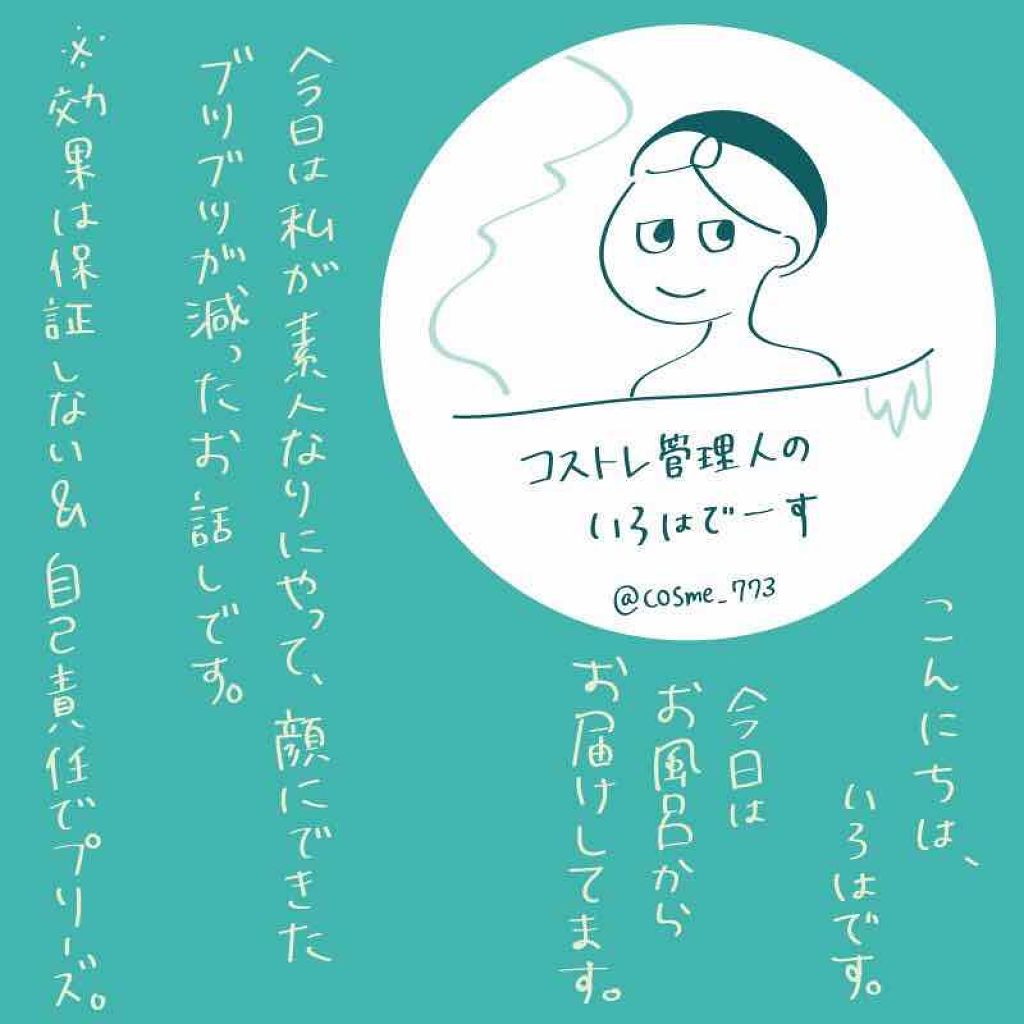 コストレ管理人の
いろはでーす
@cosme_773
こんにちは、
いろはです。
今日は
お風呂から
お届けしてます。
今日は私が素人なりにやって、顔にできた
ブツブツが減ったお話しです。
※効果は保証しない&自己責任でプリーズ。